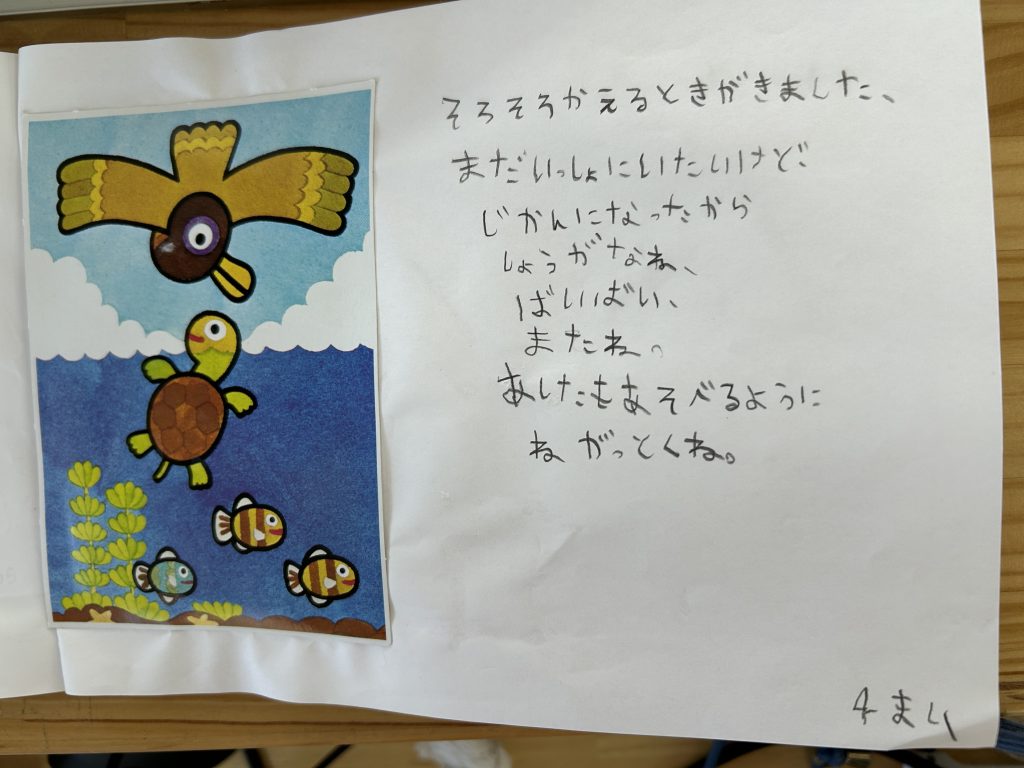 そろそろかえるときがきました、
まだいっしょにいたいけど
じかんになったから
しょうがなね、
ばいいばい、
またね。
あしたもあそべるように
ねがっとくね。
4まい